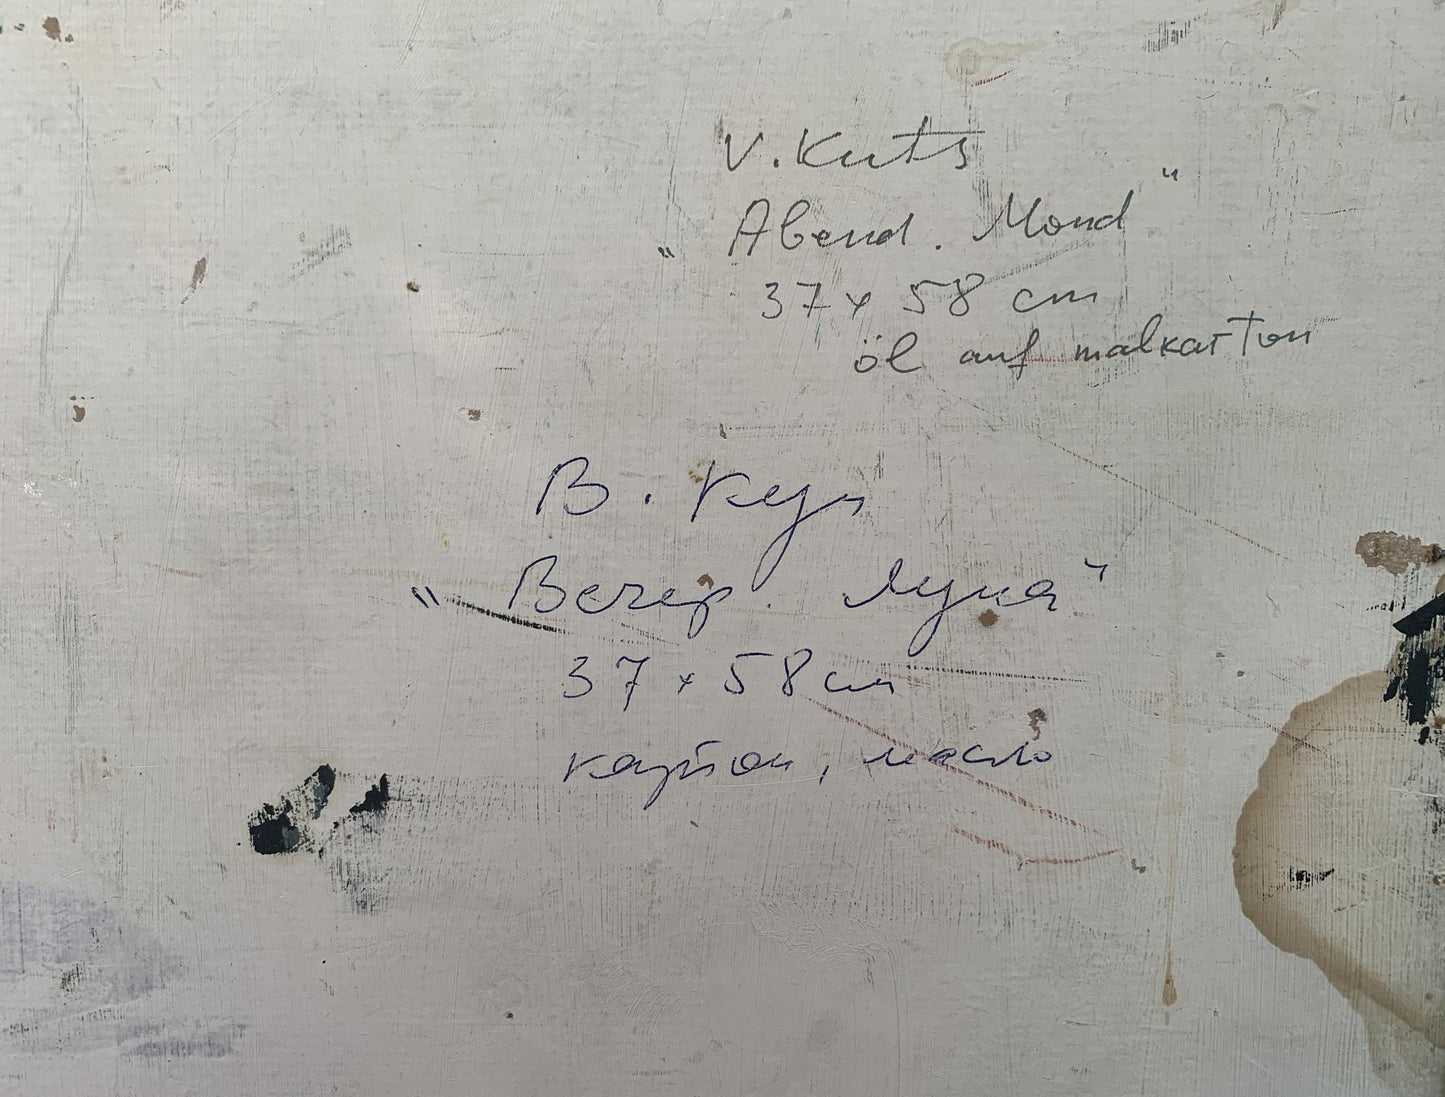 V. Kuts
„Abend. Mond"
37x58 cm
öl auf malkarton
В. Куц
„Вечер. Луна"
37x58 см
картон, масло